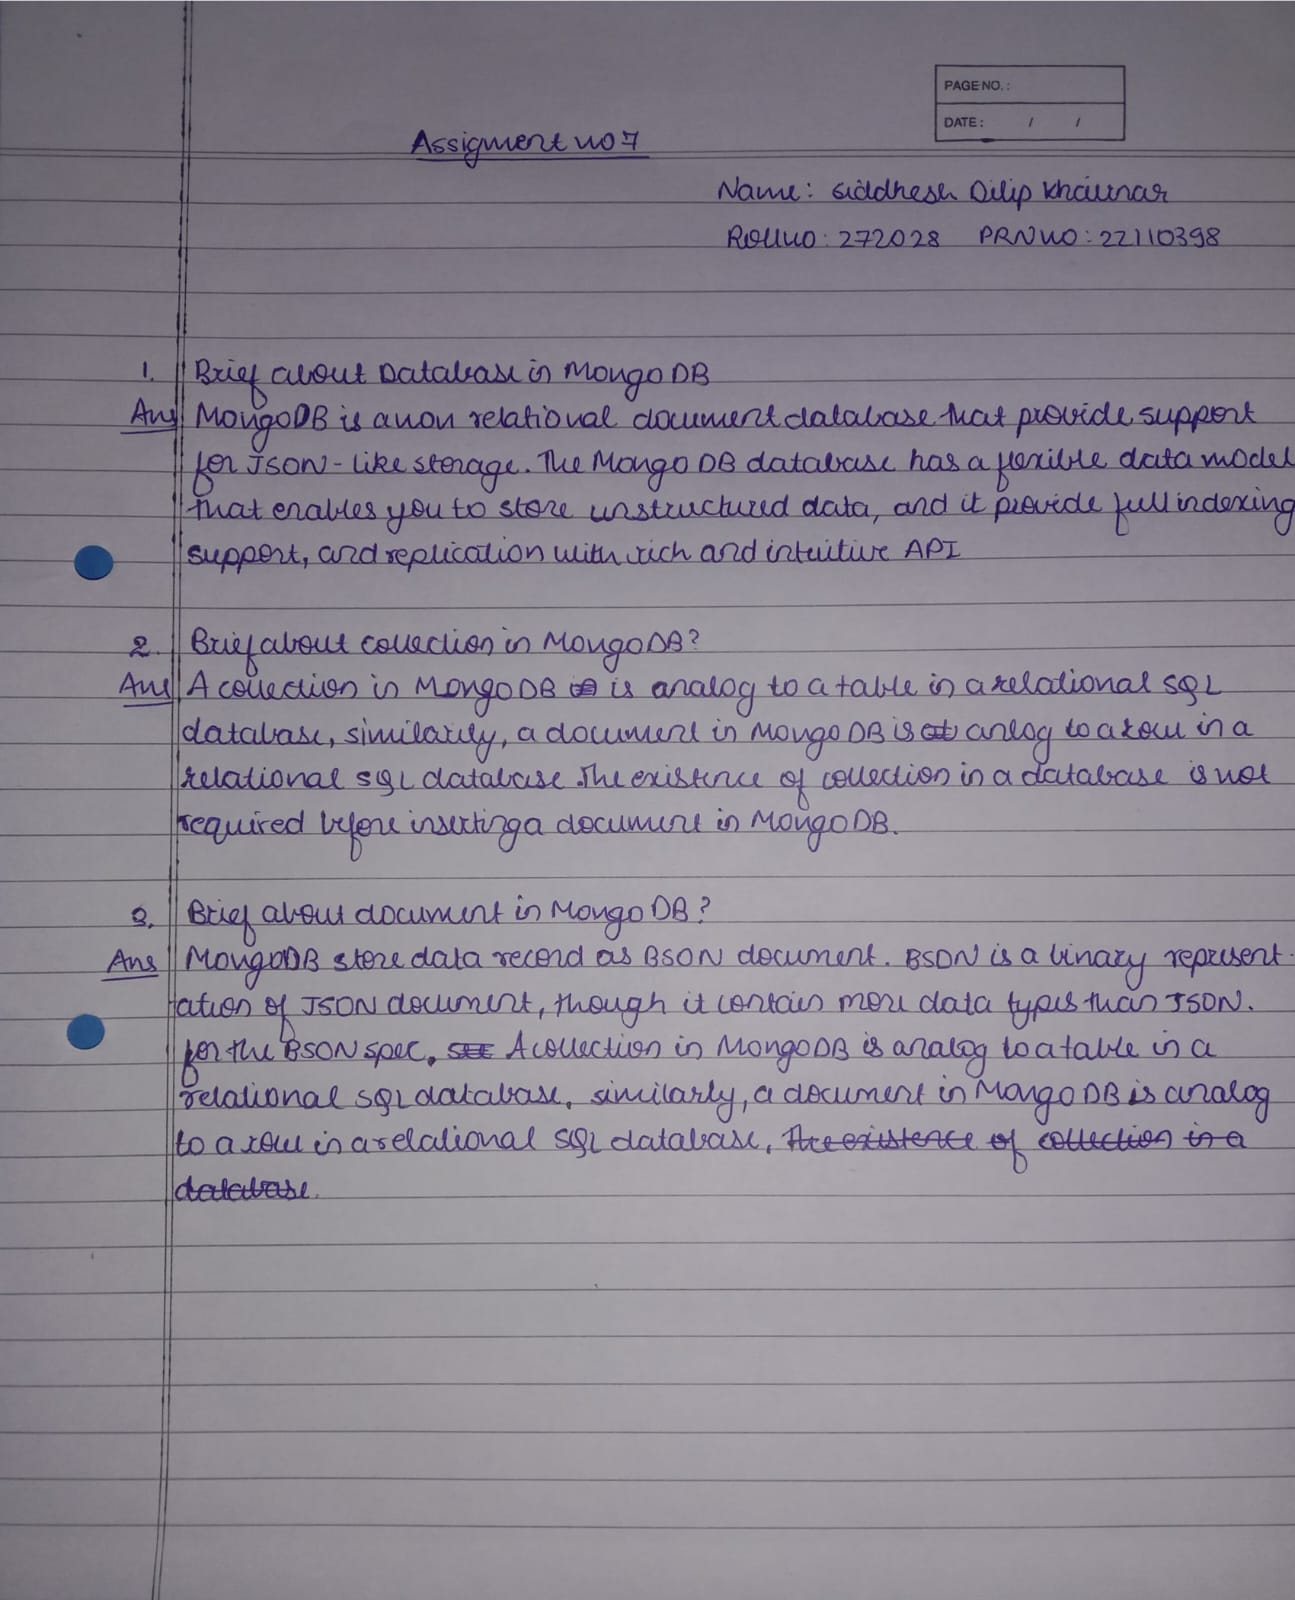 PAGE NO. :
DATE : / /
Assigment no 7
Name: Siddhesh Dilip Khairnar
Roll no : 272028 PRN no : 22110398
1. Brief about Database in MongoDB
Ans MongoDB is a non relational document database that provide support
for JSON - like storage. The MongoDB database has a flexible data model
that enables you to store unstructured data, and it provide full indexing
support, and replication with rich and intuitive API
2. Brief about collection in MongoDB?
Ans A collection in MongoDB is is analog to a table in a relational SQL
database, similarly, a document in MongoDB is anlog to a row in a
relational SQL database. The existence of collection in a database is not
required before inserting a document in MongoDB.
3. Brief about document in MongoDB?
Ans MongoDB store data record as BSON document. BSON is a binary represent-
ation of JSON document, though it contain more data types than JSON.
for the BSON spec, SEE A collection in MongoDB is analog to a table in a
relational SQL database, similarly, a document in MongoDB is analog
to a row in a relational SQL database, The existence of collection in a
database.